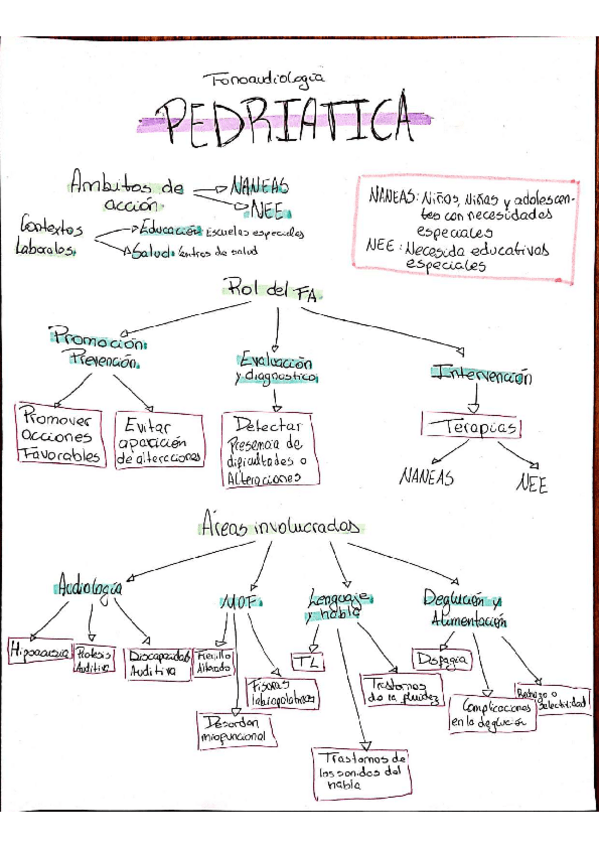 Fonoaudiología
PEDRIATICA
Ambitos de
acción
NANEAS
NEE.
Contextos
Laborales.
Educación: Escuelas especiales
Salud: Centros de salud
NANEAS: Niños, Niñas y adolescen-
tes con necesidades
especiales
NEE: Necesida educativas
especiales
Rol del FA.
Promoción.
Prevención.
Evaluación
y diagnostico.
Intervención
Promover
acciones
Favorables
Evitar
aparición
de alteraciones
Detectar
Presencia de
dificultades o
Alteraciones
Terapias
NANEAS
NEE
Áreas involucrados
Audiología
MOF.
Lenguaje
y habla
Deglución y
Alimentación
Hipoacusia
Protesis
Auditiva
Discapacidad
Auditiva
Frenillo
Alterado
Fisuras
labiopalatinas
Desorden
miofuncional
TL
Trastornos
de la fluidez
Trastornos de
los sonidos del
habla
Disfagia
Complicaciones
en la deglución
Rechazo o
selectividad